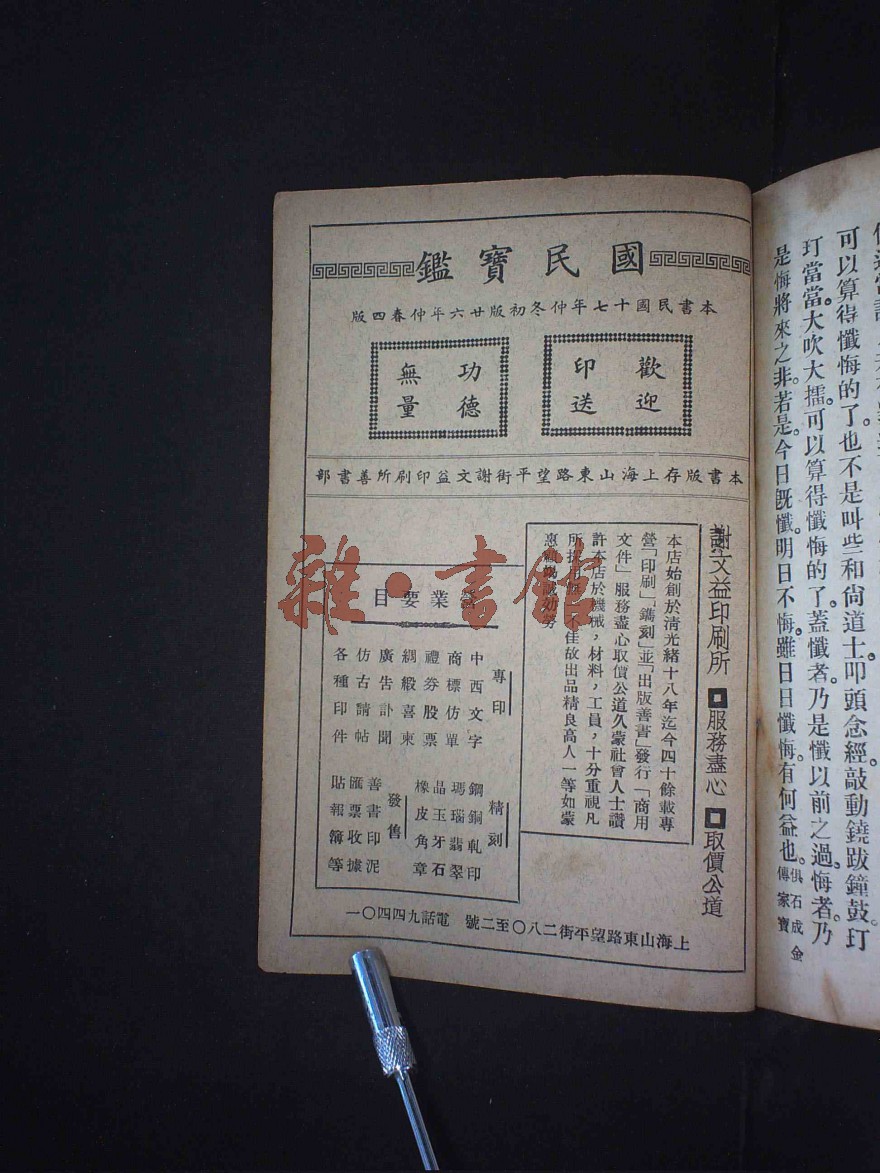 可以算得懺悔的了。也不是叫些和尙道士叩頭念經敲動鐃跋鐘鼓。玎
玎當當。大吹大擂。可以算得懺悔的了。蓋懺者。乃是懺以前之過。悔者。乃
是悔將來之非。若是今日旣懺。明日不悔。雖日日懺悔。有何益也。
俱石成金
傳家寶
國民寶鑑
本書民國十七年仲冬初版廿六年仲春四版
歡迎
印送
功德
無量
本書版存上海山東路望平街謝文益印刷所善書部
謝文益印刷所 服務盡心 取價公道
本店始創於清光緒十八年迄今四十餘載專
營「印刷」「鐫刻」並「出版善書」發行「商用
文件」服務盡心取價公道久蒙社會人士讚
許本店於機械，材料，工員，十分重視凡
所採用 不佳故出品精良高人一等如蒙
惠
營業要目
專印
中西文字
商標仿單
禮券股票
綢緞喜柬
廣告訃聞
仿古請帖
各種印件
精刻
鋼銅軋印
瑪瑙翡翠
晶玉牙石
橡皮角章
發售
善書印泥
匯票收據
貼報簿等
上海山東路望平街二八〇至二號 電話九四四〇一
雜·書館